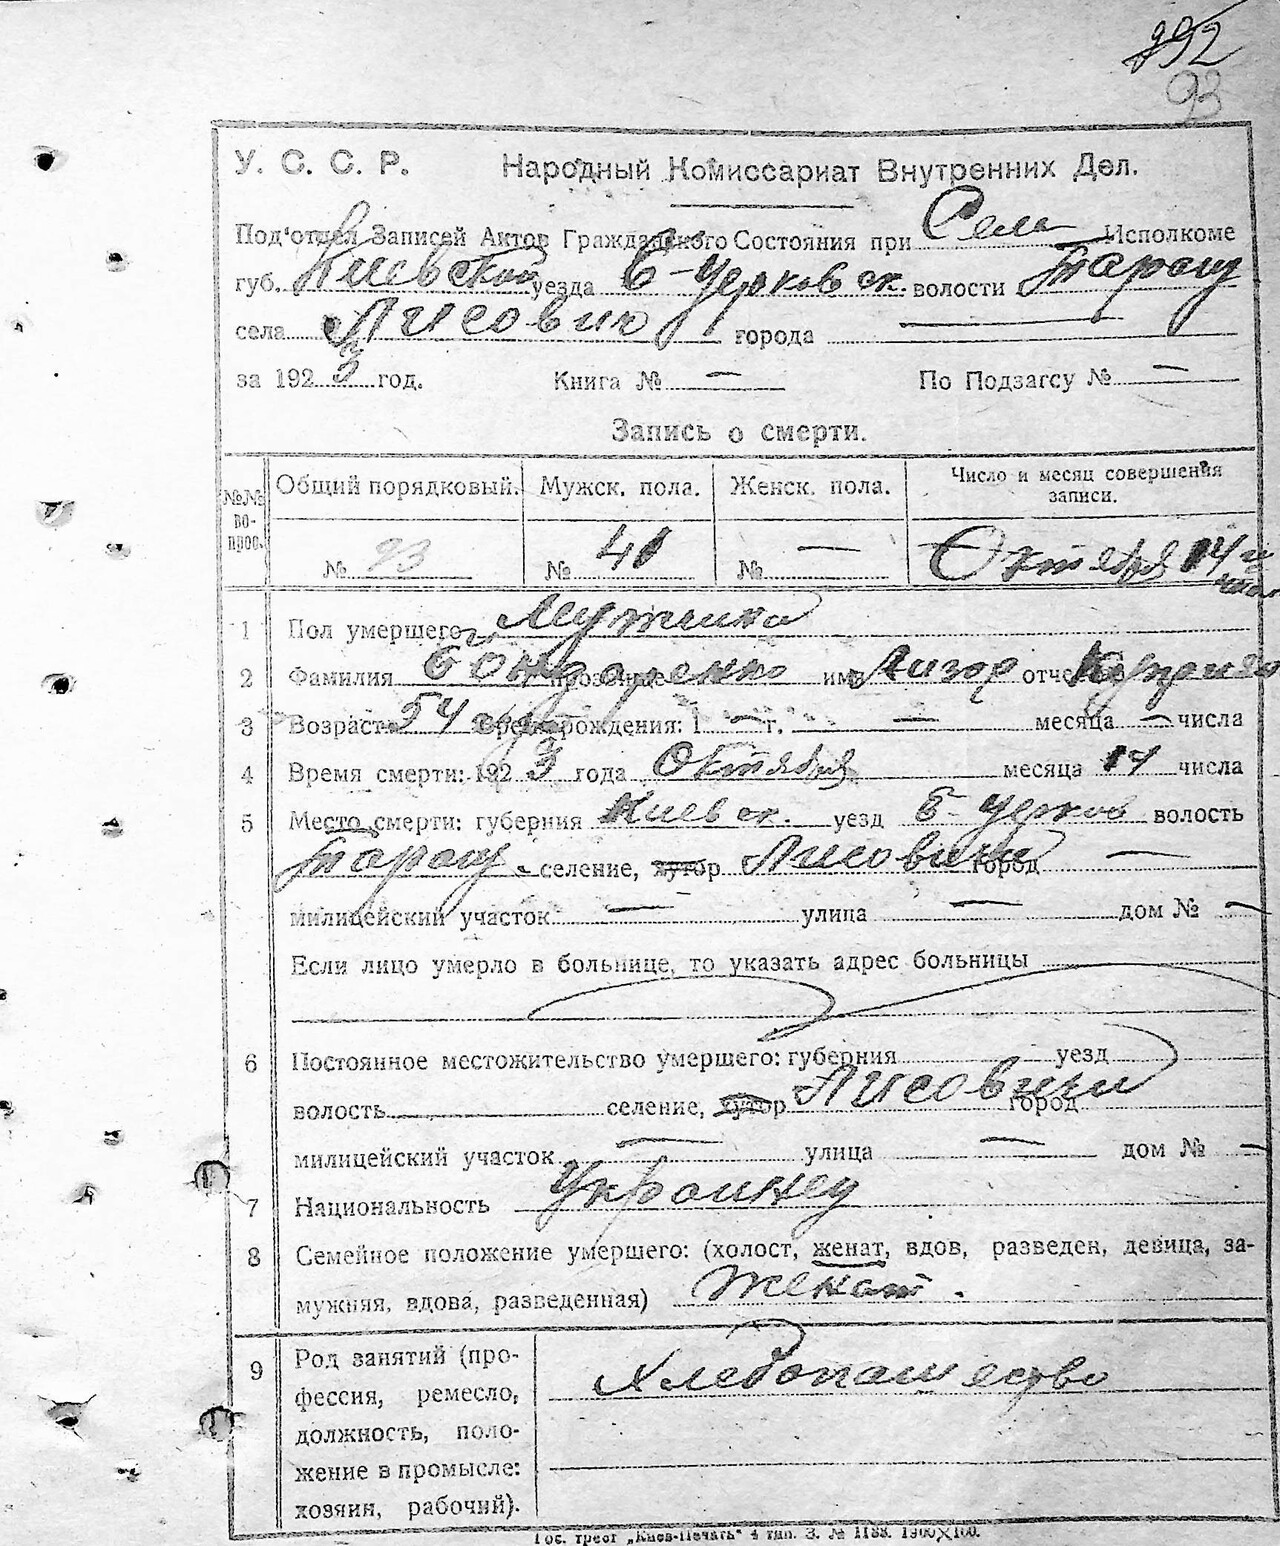 92
93
У. С. С. Р. Народный Комиссариат Внутренних Дел.
Под'отдел Записей Актов Гражданского Состояния при Сель Исполкоме
губ. Киевской уезда Б-Церковск. волости Таращ
села Лисович города —
за 1923 год. Книга № — По Подзагсу № —
Запись о смерти.
№№ вопрос. Общий порядковый. Мужск. пола. Женск. пола. Число и месяц совершения записи.
№ 93 № 41 № — Октября 14
1 Пол умершего Мужчина
2 Фамилия Бондаренко имя отчество
3 Возраст 54 Время рождения: 1 — г. — месяца — числа
4 Время смерти: 1923 года Октября месяца 14 числа
5 Место смерти: губерния Киевск. уезд Б-Церков волость
Таращ. селение, хутор Лисовичи город —
милицейский участок — улица — дом № —
Если лицо умерло в больнице, то указать адрес больницы
6 Постоянное местожительство умершего: губерния уезд
волость селение, хутор Лисовичи город
милицейский участок — улица — дом № —
7 Национальность Украинец
8 Семейное положение умершего: (холост, женат, вдов, разведен, девица, за-
мужняя, вдова, разведенная) Женат.
9 Род занятий (про- Хлебопашество
фессия, ремесло,
должность, поло-
жение в промысле:
хозяин, рабочий).
Гос. трест „Киев-Печать" 4 тип. З. № 1188. 1900×100.